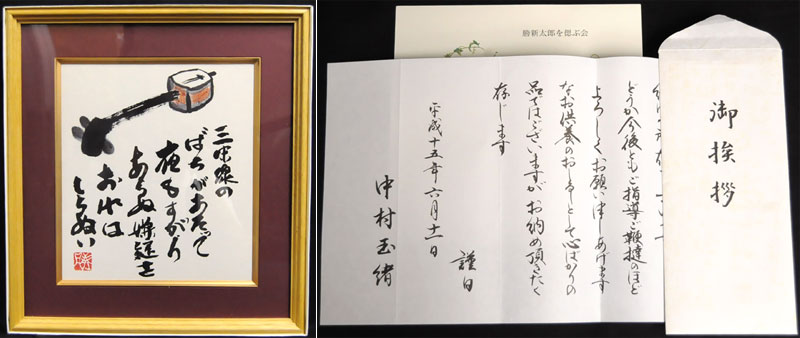 三味線の
ばちがあたって
夜もすがら
あらぬ嫌疑を
おれは
しらぬい
勝新太郎を偲ぶ会
御挨拶
どうか今後ともご指導ご鞭撻のほど
よろしくお願い申しあげます
なお供養のおしるしとして心ばかりの
品ではございますがお納め頂きたく
存じます
謹白
平成十五年六月十一日
中村玉緒